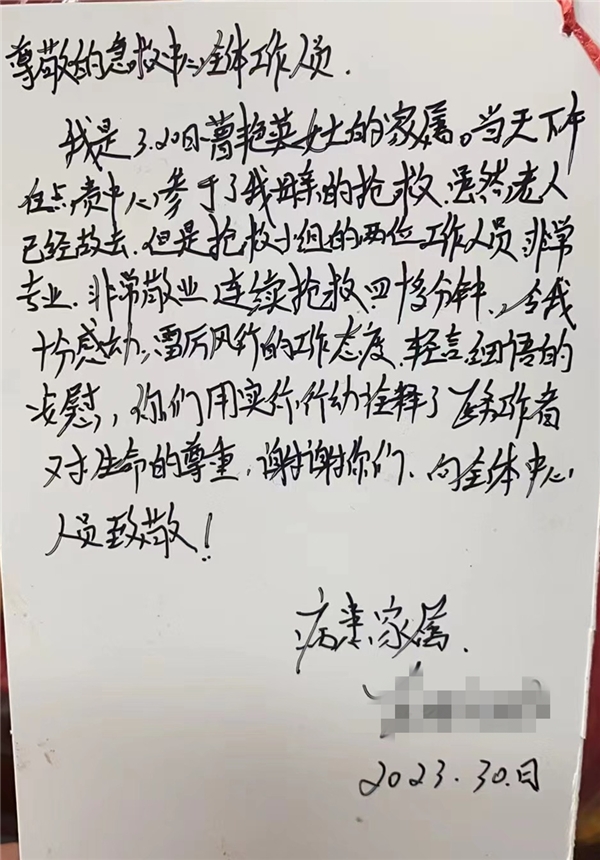 尊敬的急救中心全体工作人员.
我是3.20日曹艳英女士的家属。当天下午
在点责中心参于了我母亲的抢救.虽然老人
已经故去.但是抢救小组的两位工作人员非常
专业.非常敬业连续抢救四十多分钟.令我
十分感动.雷厉风行的工作态度.轻言细语的
安慰,你们用实际行动诠释了医务工作者
对生命的尊重,谢谢你们、向全体中心
人员致敬!
病患家属.
2023.30.日